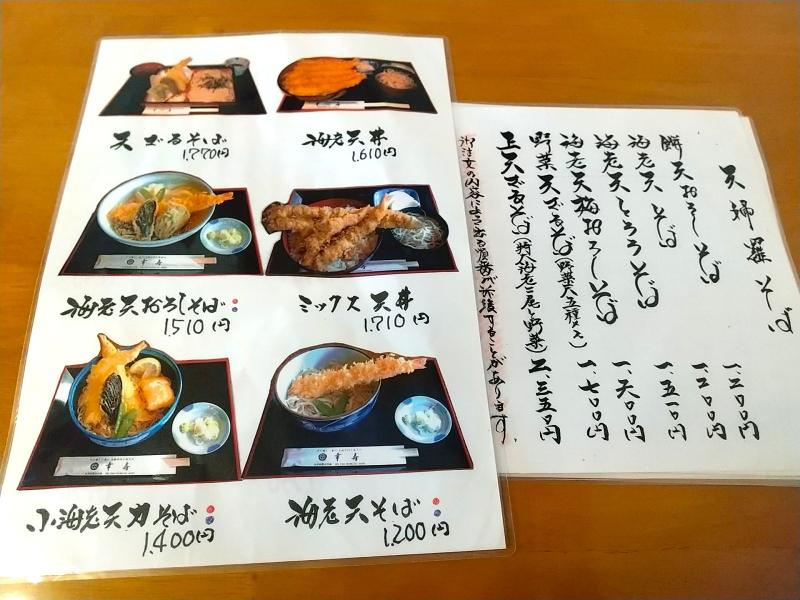 天ざるそば
1,770円
海老天丼
1,610円
海老天おろしそば
1,510円
ミックス天丼
1,710円
幸寿
小海老天力そば
1,400円
海老天そば
1,200円
幸寿
幸寿
天婦羅そば 一、二〇〇円
餅天おろしそば 一、二〇〇円
海老天そば 一、五一〇円
海老天とろろそば 一、六〇〇円
海老天梅おろしそば 一、七〇〇円
野菜天ざるそば
上天ざるそば(特大海老二尾と野菜) 二、三五〇円
御注文の内容によっては順番が前後することがあります。